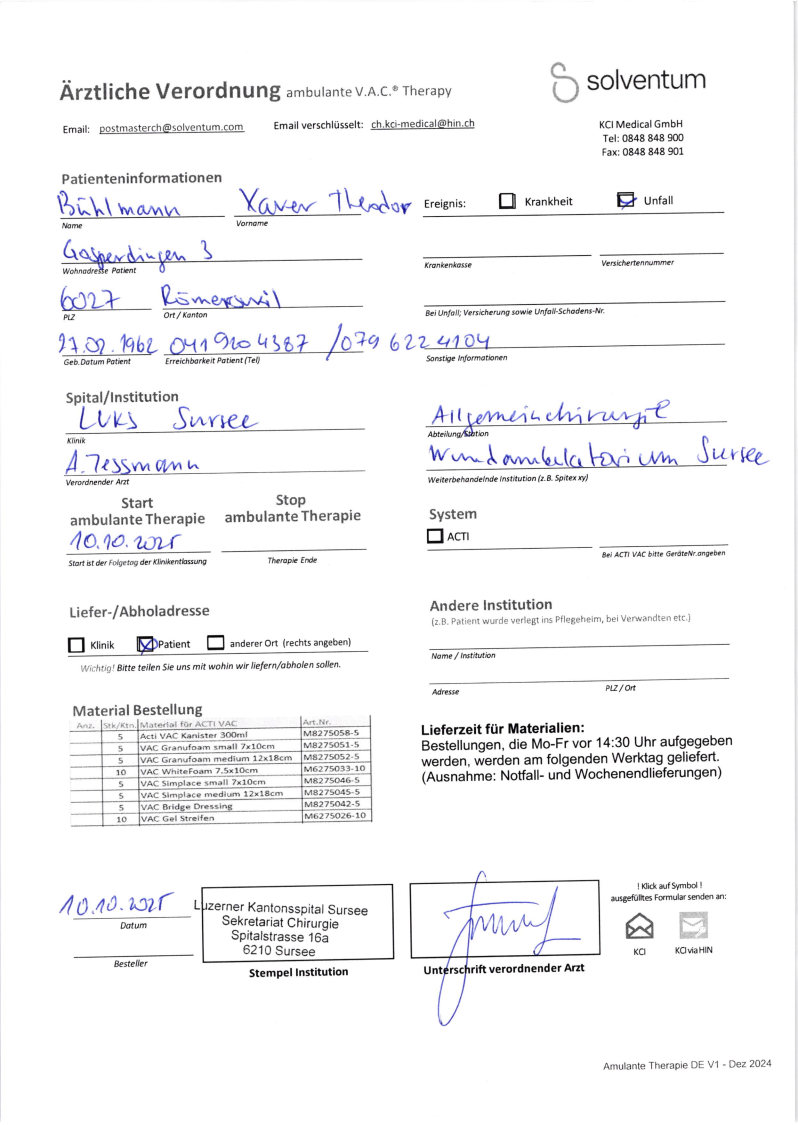 Ärztliche Verordnung ambulante V.A.C.® Therapy
solventum
Email: postmasterch@solventum.com Email verschlüsselt: ch.kci-medical@hin.ch
KCI Medical GmbH
Tel: 0848 848 900
Fax: 0848 848 901
Patienteninformationen
Bühlmann Xaver Theodor
Name Vorname
Ereignis: Krankheit Unfall
Gosperdingen 3
Wohnadresse Patient
Krankenkasse Versichertennummer
6027 Römerswil
PLZ Ort / Kanton
Bei Unfall; Versicherung sowie Unfall-Schadens-Nr.
27.02.1962 041 920 4387 / 079 622 4104
Geb.Datum Patient Erreichbarkeit Patient (Tel) Sonstige Informationen
Spital/Institution
LUKS Sursee
Klinik
Allgemeinchirurgie
Abteilung/Station
A. Tessmann
Verordnender Arzt
Wundambulatorium Sursee
Weiterbehandelnde Institution (z.B. Spitex xy)
Start Stop
ambulante Therapie ambulante Therapie
10.10.2025
Start ist der Folgetag der Klinikentlassung Therapie Ende
System
ACTI
Bei ACTI VAC bitte GeräteNr.angeben
Liefer-/Abholadresse
Klinik Patient anderer Ort (rechts angeben)
Wichtig! Bitte teilen Sie uns mit wohin wir liefern/abholen sollen.
Andere Institution
(z.B. Patient wurde verlegt ins Pflegeheim, bei Verwandten etc.)
Name / Institution
Adresse PLZ / Ort
Material Bestellung
Anz. Stk/Ktn. Material für ACTI VAC Art.Nr.
5 Acti VAC Kanister 300ml M8275058-5
5 VAC Granufoam small 7x10cm M8275051-5
5 VAC Granufoam medium 12x18cm M8275052-5
10 VAC WhiteFoam 7.5x10cm M6275033-10
5 VAC Simplace small 7x10cm M8275046-5
5 VAC Simplace medium 12x18cm M8275045-5
5 VAC Bridge Dressing M8275042-5
10 VAC Gel Streifen M6275026-10
Lieferzeit für Materialien:
Bestellungen, die Mo-Fr vor 14:30 Uhr aufgegeben
werden, werden am folgenden Werktag geliefert.
(Ausnahme: Notfall- und Wochenendlieferungen)
10.10.2025
Datum
Besteller
Luzerner Kantonsspital Sursee
Sekretariat Chirurgie
Spitalstrasse 16a
6210 Sursee
Stempel Institution
Unterschrift verordnender Arzt
! Klick auf Symbol !
ausgefülltes Formular senden an:
KCI KCI via HIN
Amulante Therapie DE V1 - Dez 2024